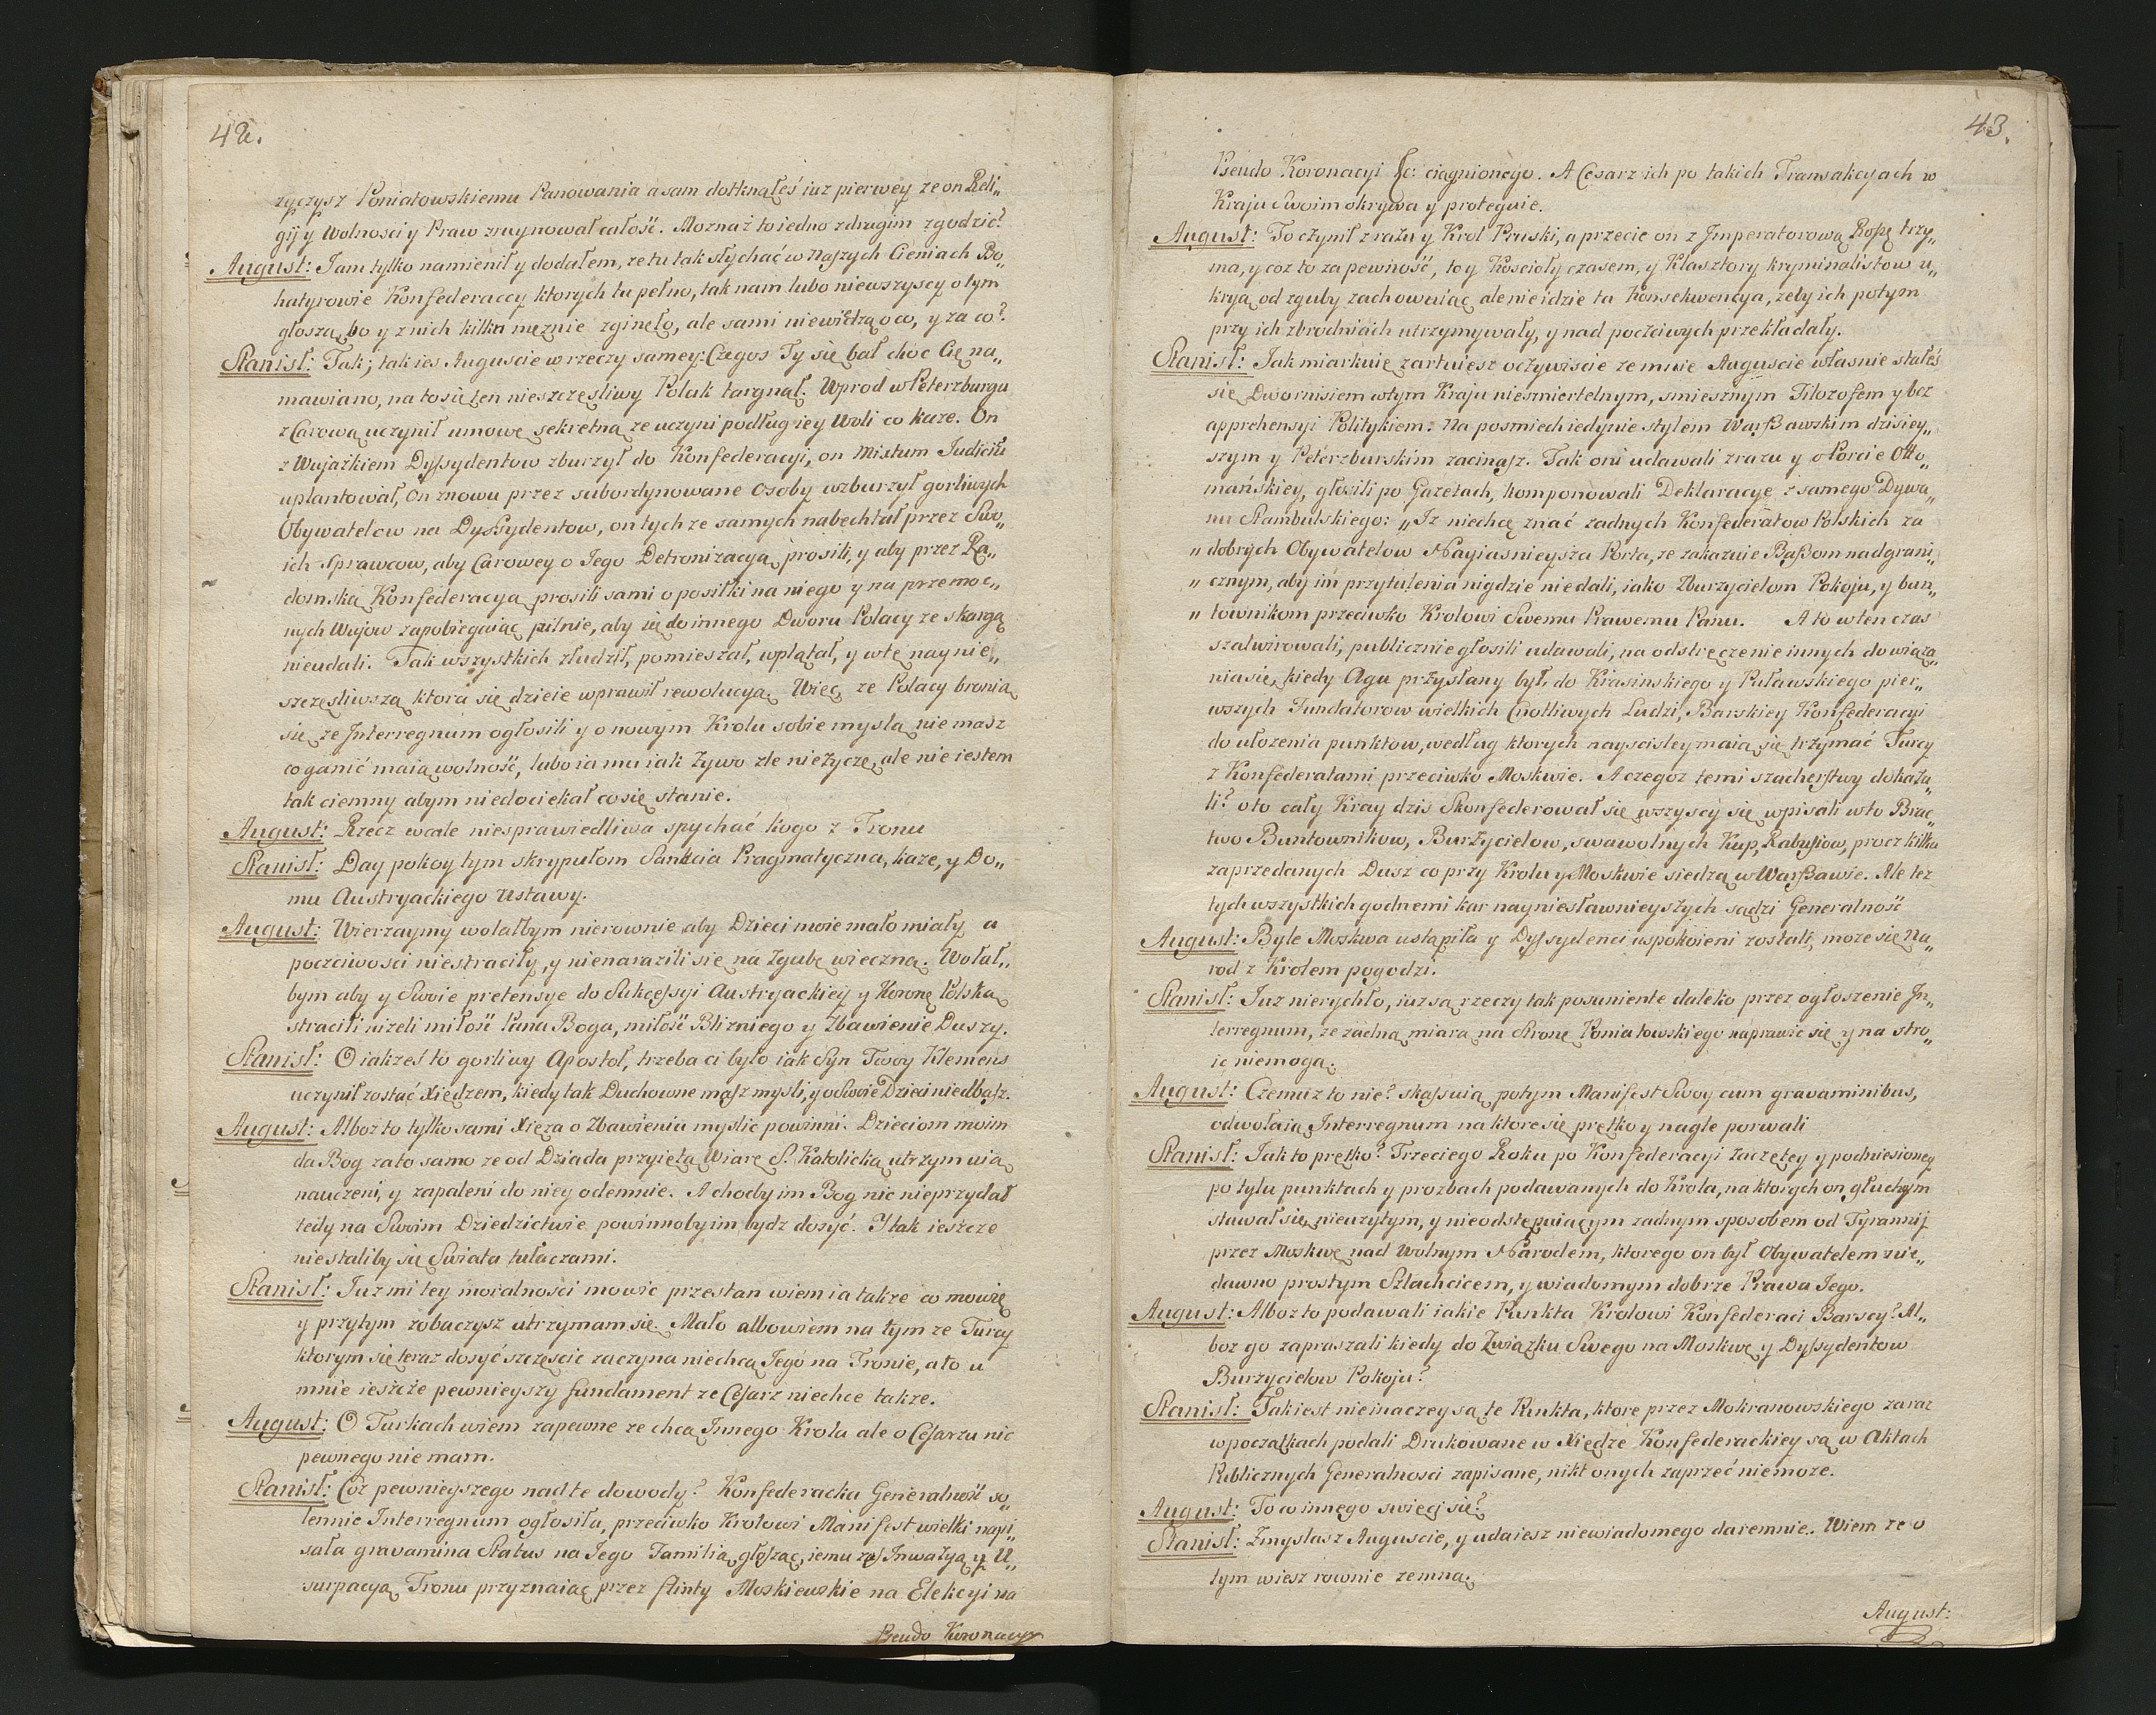 42.
zyczysz Poniatowskiemu Panowania a sam dotknąłeś iuz pierwey ze on Reli„
gij y Wolnosci y Praw zruynował całość. Moznaż to iedno z drugim zgodzić?
August: Jam tylko namienił y dodałem, ze tu tak słychać w naszych Cieniach Bo„
hatyrowie Konfederaccy ktorych tu pełno, tak nam lubo niewszyscy o tym
głoszą, bo y z nich kilku męznie zginęło, ale sami niewiedzą o co, y za co?
Stanisł: Tak; tak ies Auguscie w rzeczy samey: Czegos Ty się bał choc Cię na„
mawiano, na to się ten nieszczęsliwy Polak targnął. Wprod w Peterzburgu
z Carową uczynił umowę sekretną ze uczyni podług iey Woli co kaze. On
z Wujaszkiem Dyssydentow zburzył do Konfederacyi, on Mixtum Judiciu
uplantował, On znowu przez subordynowane Osoby wzburzył gorliwych
Obywatelow na Dyssydentow, on tych ze samych nabechtał przez Swo„
ich Sprawcow, aby Carowey o Jego Detronizacyą prosili, y aby przez Ra„
domską Konfederacyą prosili sami o posiłki na niego y na przemoc„
nych Wujow zapobiegaiąc pilnie, aby się do innego Dworu Polacy ze skargą
nieudali. Tak wszystkich złudził, pomieszał, wplątał, y w tę naynie„
szczęsliwszą ktora się dzieie wprawił rewolucyą. Więc, ze Polacy bronią
się, ze Interregnum ogłosili y o nowym Krolu sobie myslą nie masz
co ganić maią wolność, lubo ia mu iak Zywo zle nie życzę, ale nie iestem
tak ciemny abym niedociekał co się stanie.
August: Rzecz wcale niesprawiedliwa spychać kogo z Tronu
Stanisł: Day pokoy tym skrypułom Sankcia Pragmatyczna, kaze, y Do„
mu Austryackiego Ustawy.
August: Wierzaymy wolałbym nierownie, aby Dzieci moie mało miały a
poczciwosci niestraciły, y nienaraziłi się na Zgubę wieczną. Wolał„
bym aby y Swoie pretensye do Sukcessyi Austryackiey y Koronę Polską
stracili nizeli miłość Pana Boga, miłość Blizniego y Zbawienie Duszy.
Stanisł: O iakżeś to gorliwy Apostoł, trzeba ci było iak Syn Twoy Klemens
uczynił zostać Xiędzem, kiedy tak Duchowne masz mysli, y o Swoie Dzieci niedbasz.
August: Alboz to tylko sami Xięza o Zbawieniu myslic powinni. Dzieciom moim
da Bog za to samo ze od Dziada przyiętą Wiarę S. Katolicką utrzymuią
nauczeni, y zapaleni do niey odemnie. A chocby im Bog nic nieprzydał
tedy na Swoim Dziedzictwie powinnoby im bydz dosyć. Y tak ieszcze
niestaliby się Swiata tułaczami.
Stanisł: Juz mi tey moralnosci mowic przestan wiem ia takze co mowię
y przytym zobaczysz utrzymam się. Mało albowiem na tym ze Turcy
ktorym się teraz dosyć szczęscic zaczyna niechcą Jego na Tronie, ato u
mnie ieszcze pewnieyszy fundament ze Cesarz niechce takze.
August: O Turkach wiem zapewne ze chcą Innego Krola ale o Cesarzu nic
pewnego nie mam.
Stanisł: Coz pewnieyszego nad te dowody? Konfederacka Generalność so„
lennie Interregnum ogłosiła, przeciwko Krolowi Manifest wielki napi„
sała gravamina Status na Jego Familią głosząc, iemu zaś Inwazyą y U„
surpacyą Tronu przyznaiąc przez flinty Moskiewskie na Elekcyi na
Pseudo Koronacyi
43.
Pseudo Koronacyi &c: ciągnionego. A Cesarz ich po takich Transakcyach w
Kraju Swoim okrywa y proteguie.
August: To czynił zrazu y Krol Pruski, a przecie on z Imperatorową Rossę trzy„
ma, y coz to za pewność, to y Koscioły czasem, y Klasztory kryminalistow u„
kryą od zguby zachowuiąc, ale nie idzie ta Konsekwencya, zeby ich potym
przy ich zbrodniach utrzymywały, y nad poczciwych przekładały.
Stanisł: Jak miarkuię zartuiesz oczywiscie ze mnie Auguscie własnie stałeś
się Dwornisiem w tym Kraju niesmiertelnym, smiesznym Filozofem y bez
apprehensyi Politykiem. Na posmiech iedynie stylem Warszawskim dzisiey„
szym y Peterzburskim zacinasz. Tak oni udawali zrazu y o Porcie Otto„
mańskiey, głosili po Gazetach, komponowali Deklaracye z samego Dywa„
nu Stambulskiego: „Iz niechcę znać zadnych Konfederatow Polskich za
„ dobrych Obywatelow Nayiasnieysza Porta, ze zakazuie Baszom nadgrani„
„ cznym, aby im przytulenia nigdzie niedali, iako Zburzycielom Pokoju, y bun„
„ townikom przeciwko Krolowi Swemu Prawemu Panu. A to w ten czas
szalwirowali, publicznie głosili udawali, na odstręczenie innych do wiąza„
nia się, kiedy Aga przysłany był, do Krasinskiego y Puławskiego pier„
wszych Fundatorow wielkich Cnotliwych Ludzi, Barskiey Konfederacyi
do ułozenia punktow, według ktorych nayscisley maią się trzymać Turcy
z Konfederatami przeciwko Moskwie. A czegoz temi szacherstwy dokaza„
li? oto cały Kray dzis Skonfederował się, wszyscy się wpisali w to Brac„
two Buntownikow, Burzycielow, swawolnych Kup, Rabusiow, procz kilku
zaprzedanych Dusz co przy Krolu y Moskwie siedzą w Warszawie. Ale tez
tych wszystkich godnemi kar nayniesławnieyszych sądzi Generalność
August: Byle Moskwa ustąpiła y Dyssydenci uspokoieni zostali, moze się Na„
rod z Krolem pogodzi.
Stanisł: Juz nierychło, iuz są rzeczy tak posuniente daleko przez ogłoszenie In„
terregnum, ze zadną miarą na Stronę Poniatowskiego naprawic się y na stro„
ic niemogą.
August: Czemuz to nie? skassuią potym Manifest Swoy cum gravaminibus,
odwołaią Interregnum na ktore się prętko y nagle porwali
Stanisł: Jak to prętko? Trzeciego Roku po Konfederacyi Zaczętey y podniesioney
po tylu punktach y prozbach podawanych do Krola, na ktorych on głuchym
stawał się, nieuzytym, y nieodstępuiącym zadnym sposobem od Tyrannij
przez Moskwę nad Wolnym Narodem, ktorego on był Obywatelem nie„
dawno prostym Szlachcicem, y wiadomym dobrze Prawa Jego.
August: Alboz to podawali iakie Punkta Krolowi Konfederaci Barscy? Al„
boz go zapraszali kiedy do Związku Swego na Moskwę y Dyssydentow
Burzycielow Pokoju?
Stanisł: Tak iest nieinaczey są te Punkta, ktore przez Mokranowskiego zaraz
wpoczątkach podali Drukowane w Xiędze Konfederackiey są w Aktach
Publicznych Generalnosci zapisane, nikt onych zaprzeć niemoze.
August: To co innego swięci się?
Stanisł: Zmyslasz Auguscie, y udaiesz niewiadomego daremnie. Wiem ze o
tym wiesz rownie zemną.
August: